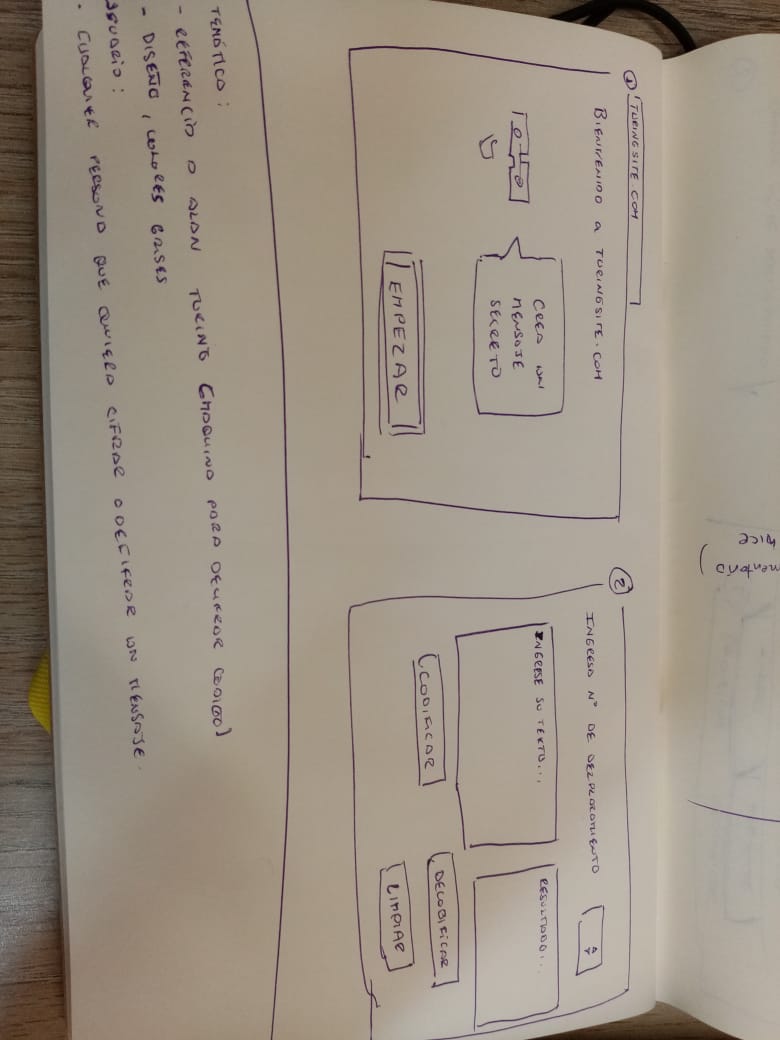 ① TURINGSITE.COM
BIENVENIDO A TURINGSITE.COM
CREA UN
MENSAJE
SECRETO
EMPEZAR
②
INGRESA N° DE DEZPLAZAMIENTO
INGRESE SU TEXTO...
RESULTADO...
CODIFICAR
DECODIFICAR
LIMPIAR
TEMÁTICA:
- REFERENCIA A ALAN TURING (MAQUINA PARA DECIFRAR CODIGO)
- DISEÑO, COLORES BASES
USUARIO:
- CUALQUIER PERSONA QUE QUIERA CIFRAR O DECIFRAR UN MENSAJE.